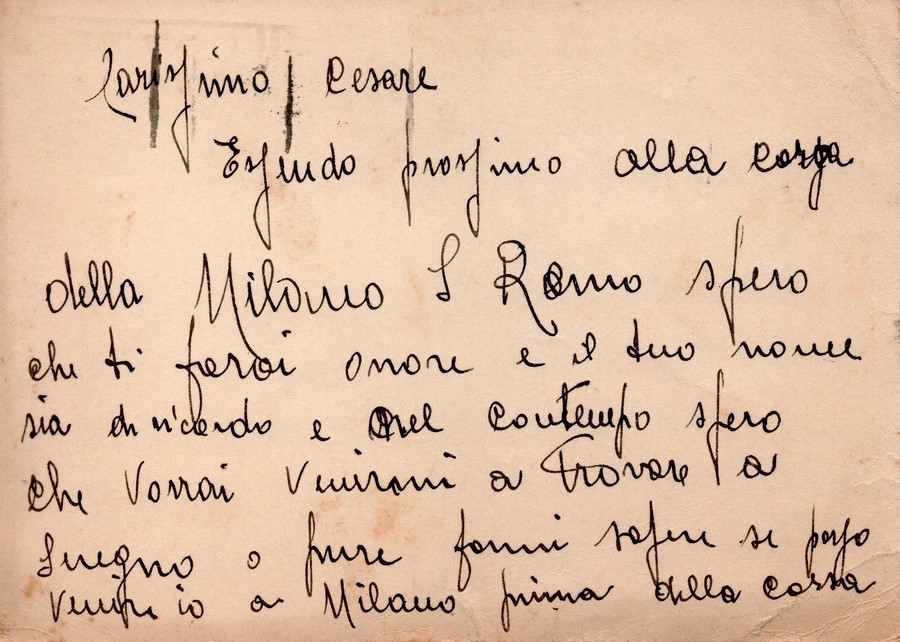 Carissimo Cesare
Essendo prossimo alla corsa
della Milano S Remo spero
che ti farai onore e il tuo nome
sia di ricordo e nel contempo spero
che Vorrai Venirmi a Trovare a
Sregno o pure farmi sapere se posso
Venire io a Milano prima della corsa